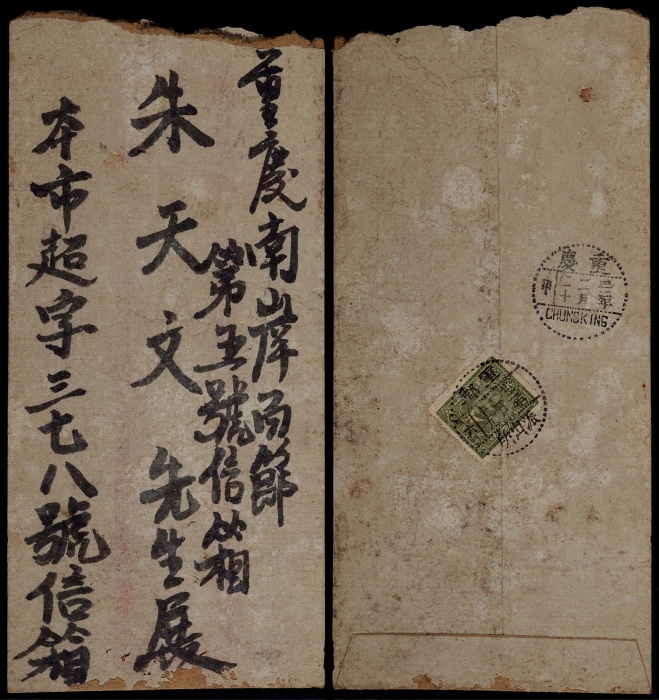 重慶南岸局節
第五號信箱
朱天文先生展
本市超字三七八號信箱
重慶
三年
二月
二十
CHUNGKING